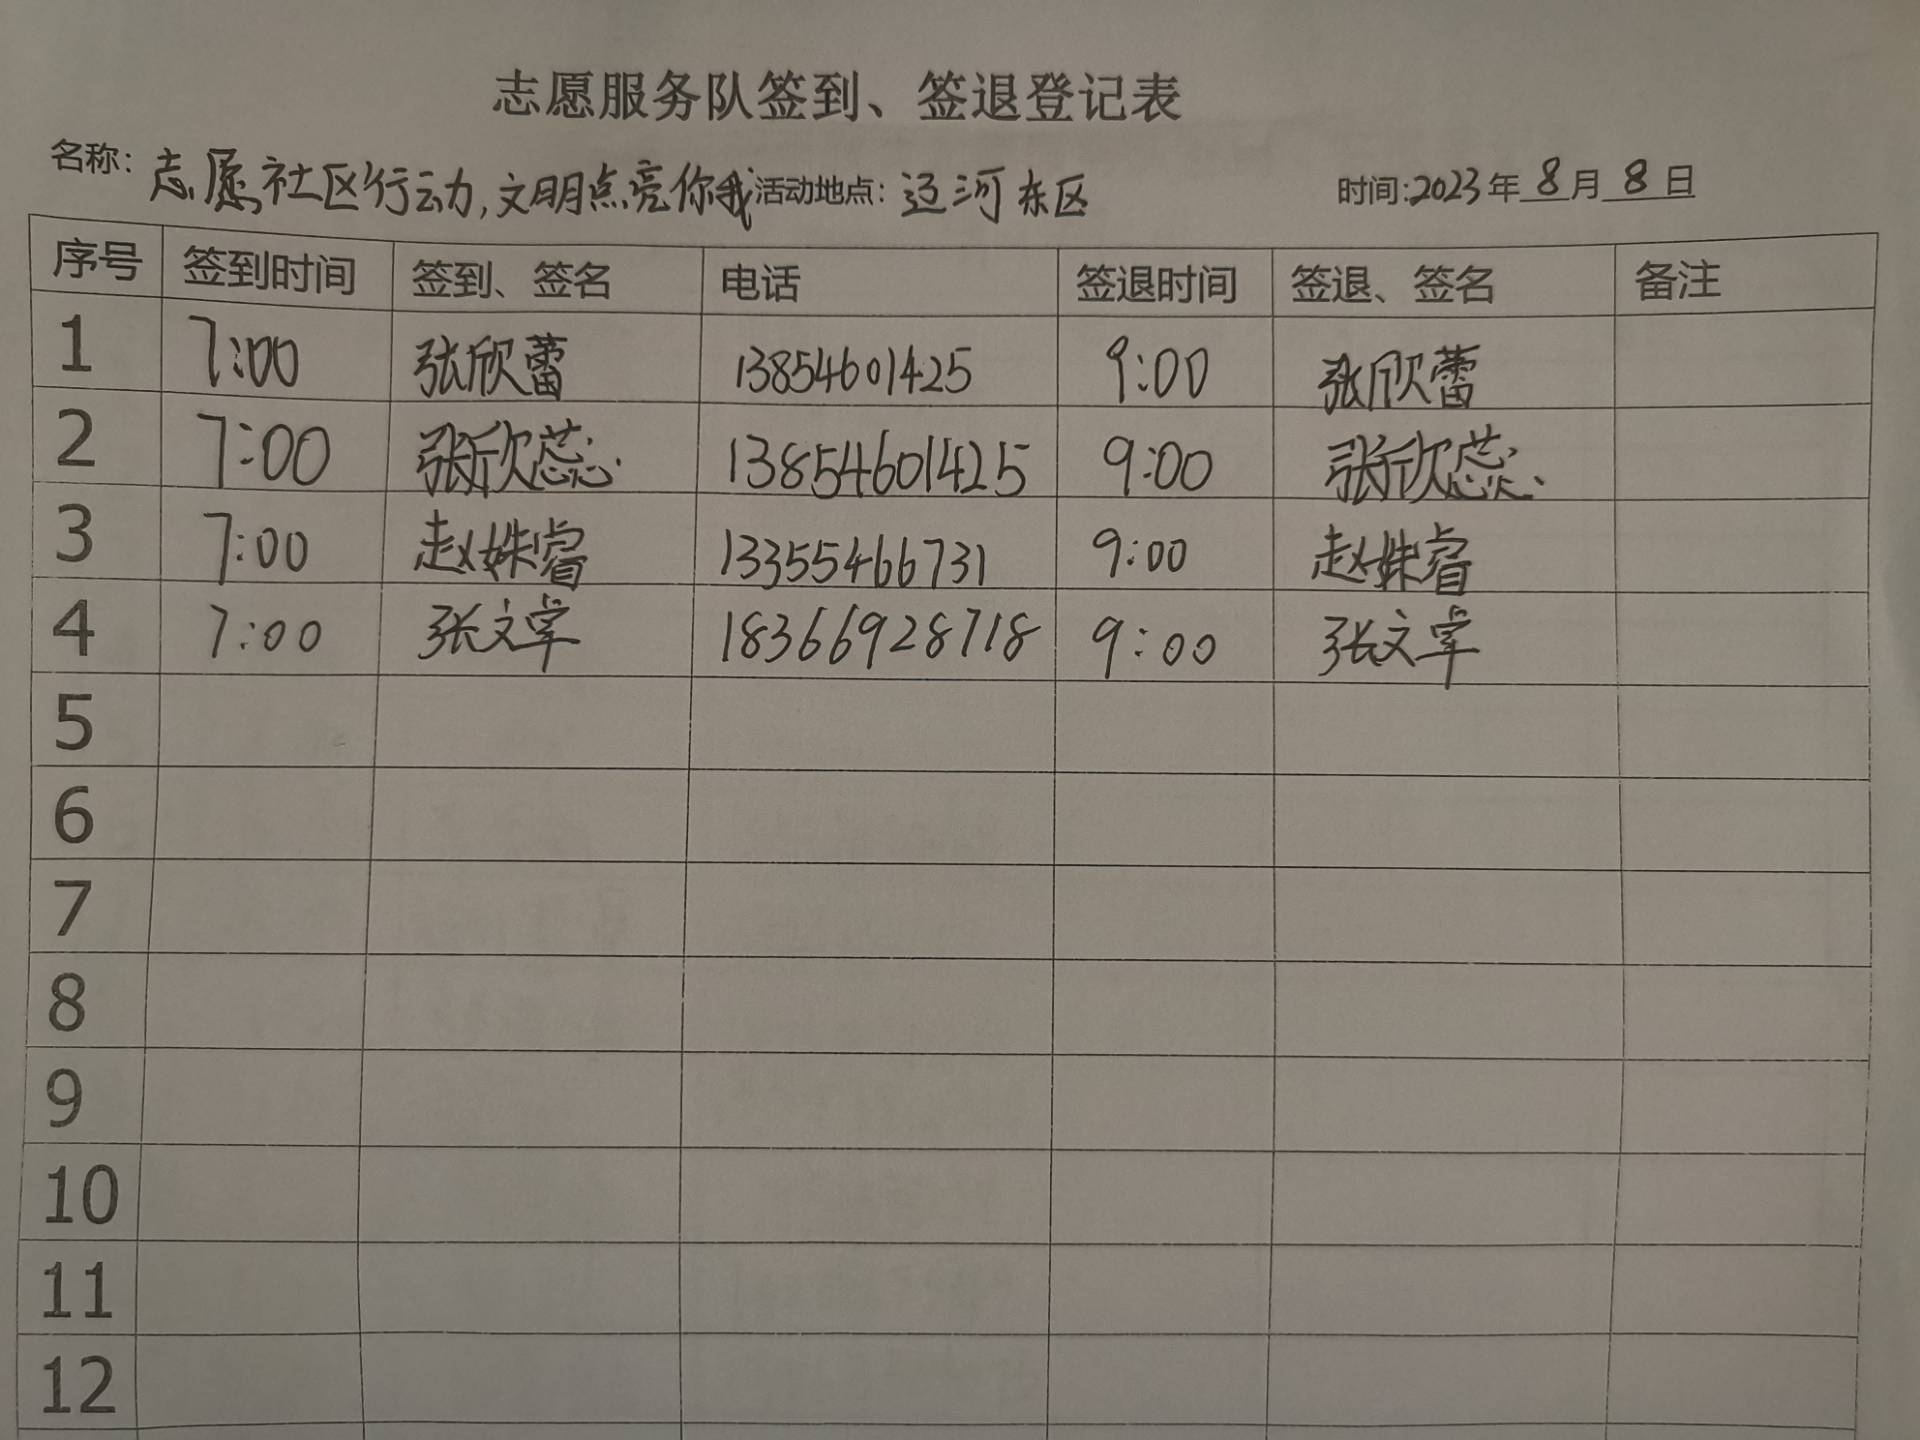 志愿服务队签到、签退登记表
名称: 志愿社区行动,文明点亮你我 活动地点: 辽河东区 时间:2023年8月8日
序号 签到时间 签到、签名 电话 签退时间 签退、签名 备注
1 7:00 张欣蕾 13854601425 9:00 张欣蕾
2 7:00 张欣蕊 13854601425 9:00 张欣蕊
3 7:00 赵姝睿 13355466731 9:00 赵姝睿
4 7:00 张文卓 18366928718 9:00 张文卓
5
6
7
8
9
10
11
12